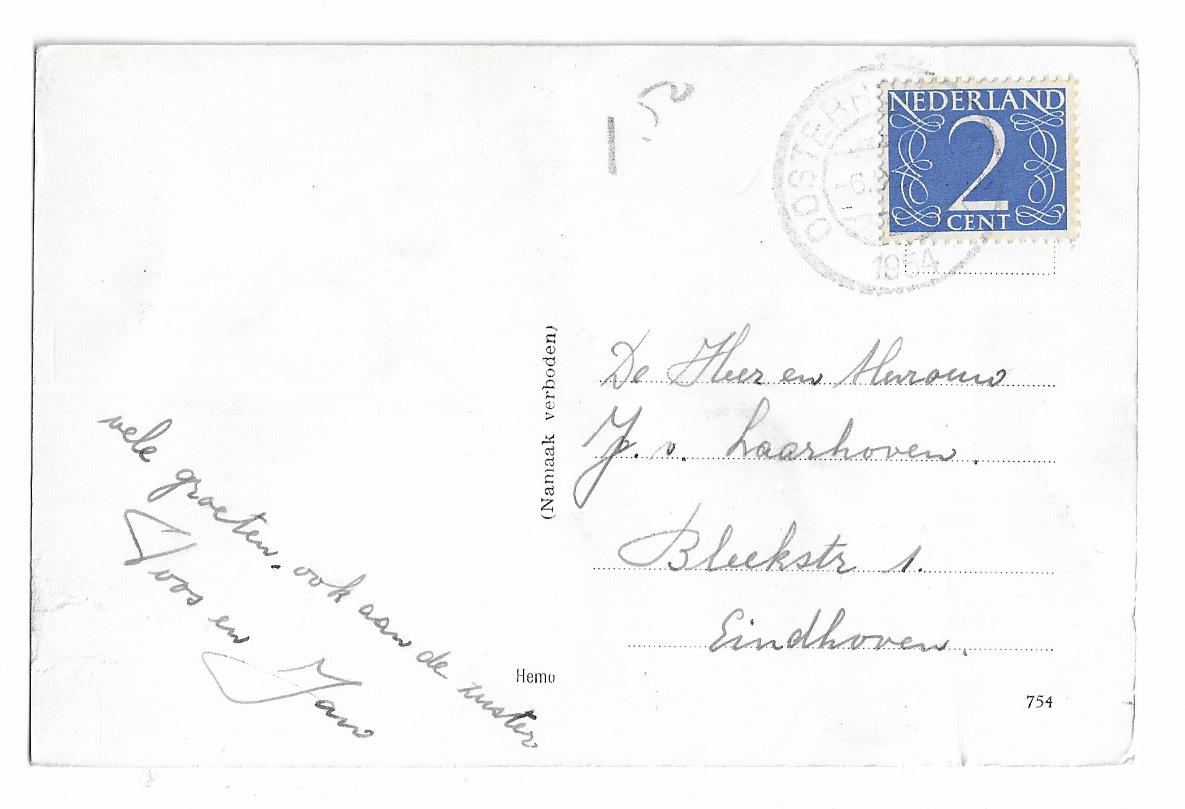 vele groeten. ook aan de zuster
Toos en Jan
(Namaak verboden)
Hemo
NEDERLAND
2
CENT
OOSTERH
-6.
1954
De Heer en Mevrouw
J. v. Laarhoven.
Bleekstr 1.
Eindhoven.
754